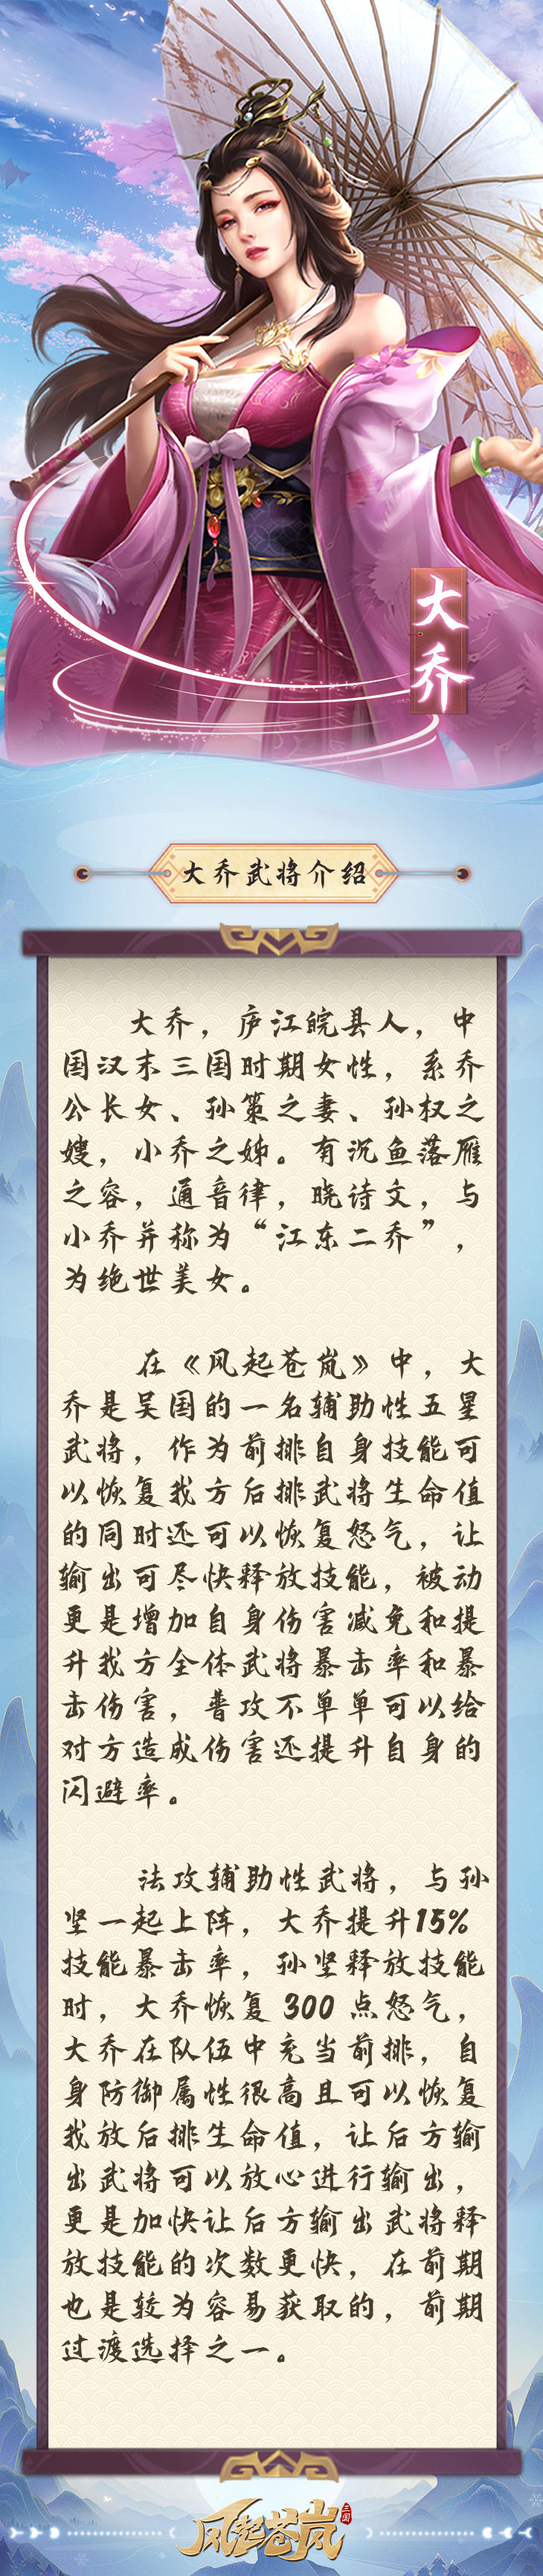 大乔
大乔武将介绍
大乔，庐江皖县人，中
国汉末三国时期女性，系乔
公长女、孙策之妻、孙权之
嫂，小乔之姊。有沉鱼落雁
之容，通音律，晓诗文，与
小乔并称为“江东二乔”，
为绝世美女。
在《风起苍岚》中，大
乔是吴国的一名辅助性五星
武将，作为前排自身技能可
以恢复我方后排武将生命值
的同时还可以恢复怒气，让
输出可尽快释放技能，被动
更是增加自身伤害减免和提
升我方全体武将暴击率和暴
击伤害，普攻不单单可以给
对方造成伤害还提升自身的
闪避率。
法攻辅助性武将，与孙
坚一起上阵，大乔提升15%
技能暴击率，孙坚释放技能
时，大乔恢复 300 点怒气，
大乔在队伍中充当前排，自
身防御属性很高且可以恢复
我放后排生命值，让后方输
出武将可以放心进行输出，
更是加快让后方输出武将释
放技能的次数更快，在前期
也是较为容易获取的，前期
过渡选择之一。
风起苍岚
三国